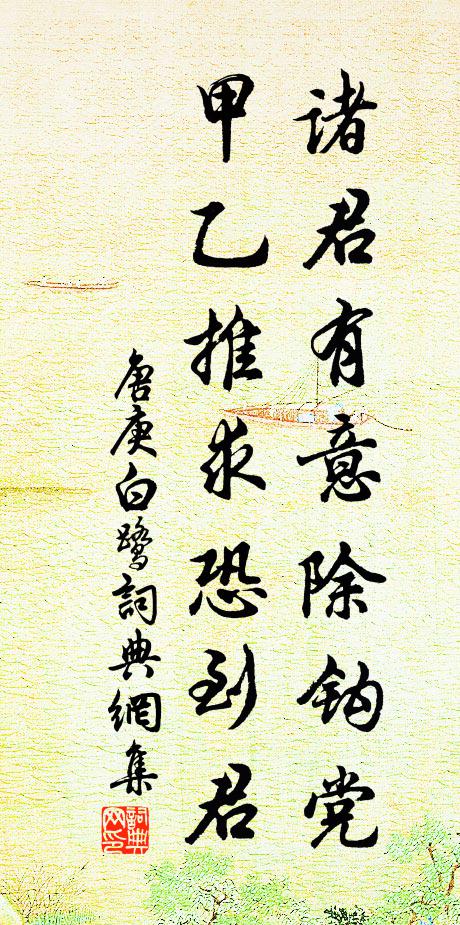 诸君有意除钩党
甲乙推求恐到君
唐庚白鹭詞典網集
詞典网印